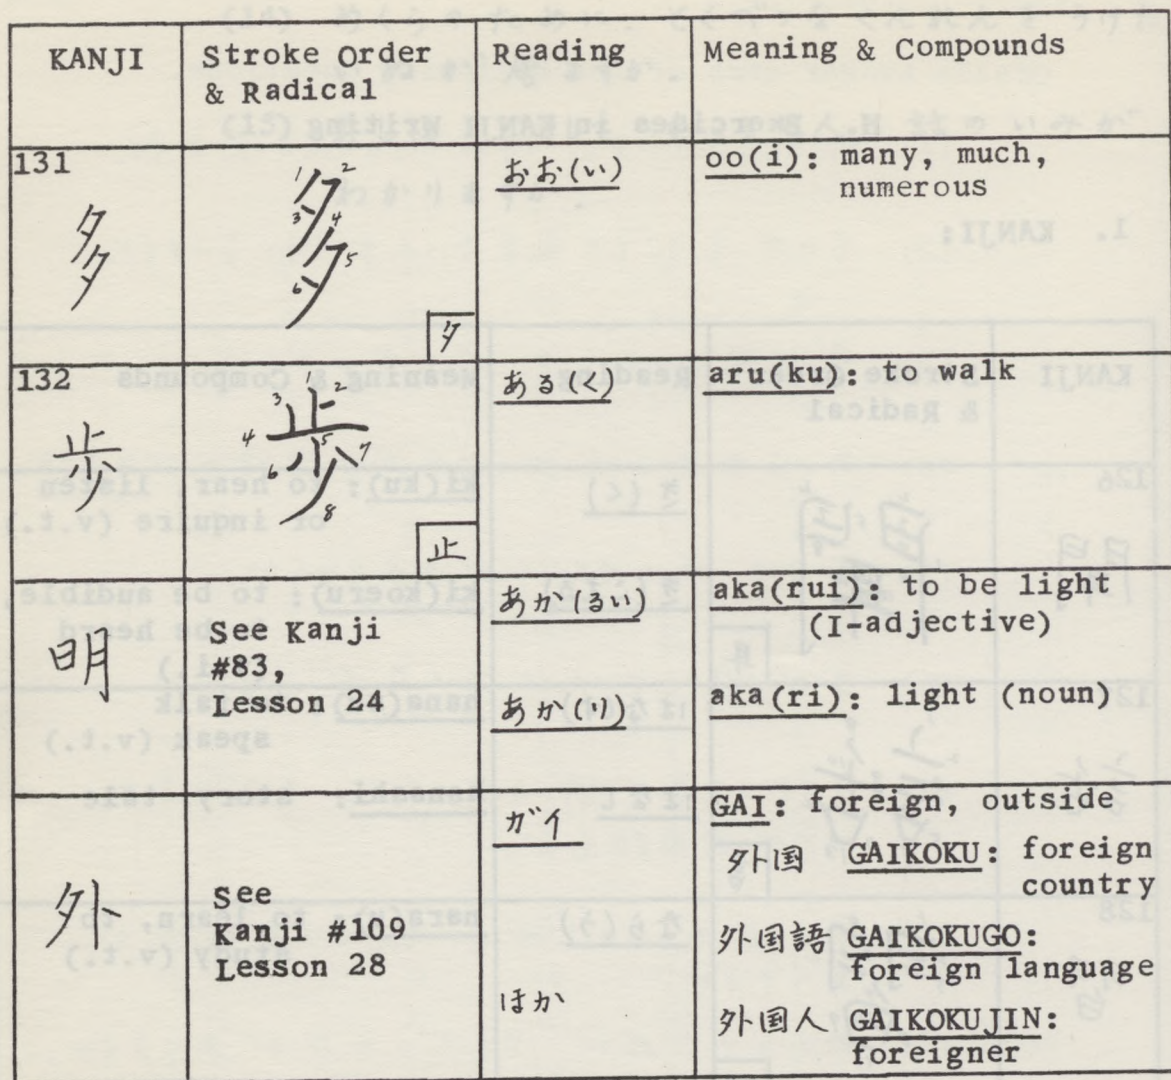 KANJI Stroke Order & Radical Reading Meaning & Compounds
131
多
多
1 2 3 4 5 6
タ
おお(い)
oo(i): many, much,
numerous
132
歩
歩
1 2 3 4 5 6 7 8
止
ある(く)
aru(ku): to walk
明
See Kanji
#83,
Lesson 24
あか(るい)
aka(rui): to be light
(I-adjective)
あか(り)
aka(ri): light (noun)
外
See
Kanji #109
Lesson 28
ガイ
GAI: foreign, outside
外国 GAIKOKU: foreign
country
外国語 GAIKOKUGO:
foreign language
ほか
外国人 GAIKOKUJIN:
foreigner